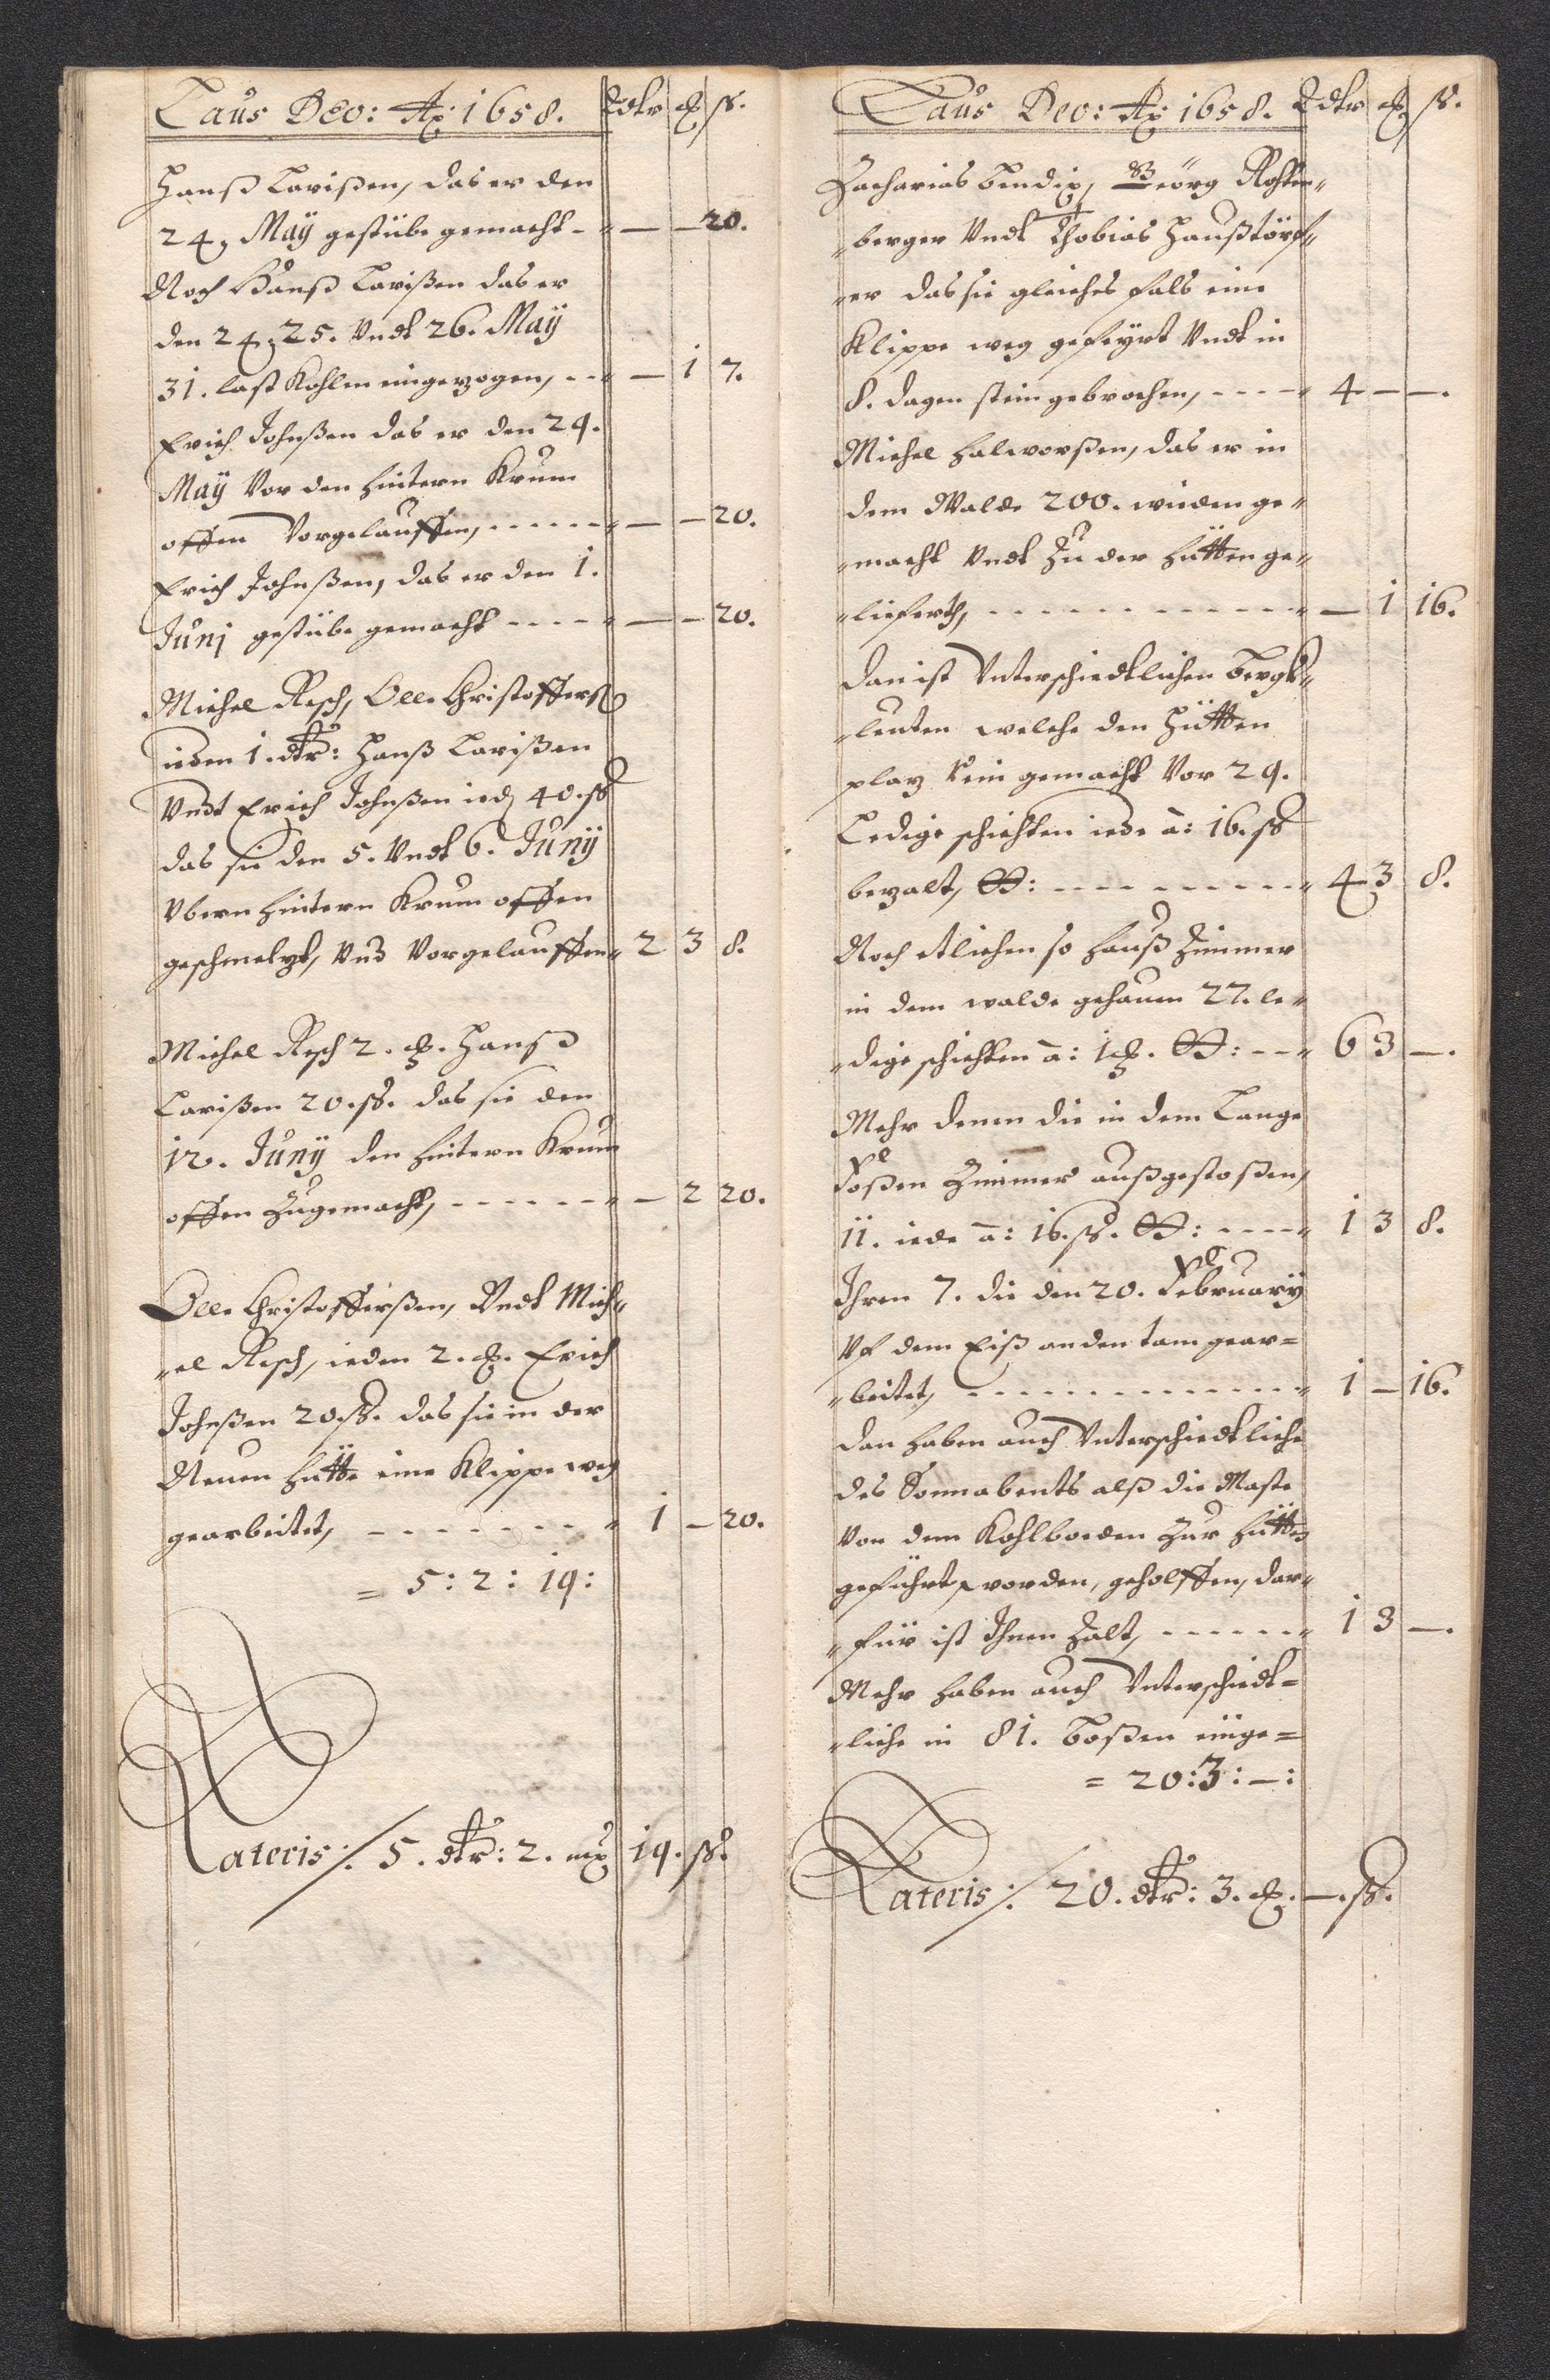 Laus Deo: Ao: 1658. Rdtr ß.
Hanß Larißen, das er den
24, Maÿ gestübe gemacht - - - 20.
Noch Hanß Larißen das er
den 24, 25. Vndt 26. Maÿ
31. last Kohlen eingezogen, - - - 1 7.
Erich Johnßen das er den 29.
Maÿ Vor den hintern Krum
offen Vorgelauffen, - - - - - 20.
Erich Johnßen, das er den 1.
Junj gestübe gemacht - - - - - 20.
Michel Resch, Olle Christofferß
ieden 1. dtr: Hanß Larißen
Vndt Erich Johnßen ied, 40. ß
das sie den 5. Vndt 6. Junÿ
Vbern hintern Krum offen
geschmeltzt, Vnd Vorgelauffen 2 3 8.
Michel Resch 2. Hanß
Larißen 20. ß. das sie den
12. Junÿ den hintern Krum
offen Zugemacht, - - - - - - 2 20.
Olle Christofferßen, Vndt Mich„
„el Resch, ieden 2. Erich
Johnßen 20. ß. das sie in der
Neuen hütte eine Klippe weg
gearbeitet, - - - - - - 1 - 20.
= 5: 2: 19:
Lateris:/ 5. dtr: 2. 19. ß.
Laus Deo: Ao: 1658. Rdtr ß.
Zacharias Bendix, Geörg
„berger Vndt Thobias Haußtörf„
„er das sie gleiches fals eine
Klippe weg gefeyrt Vndt in
8. dagen stein gebrochen, - - - - 4 - -.
Michel Halworßen, das er in
dem Walde 200. wieden ge„
„macht Vndt Zu der hütten ge„
„lieferth, - - - - - - - - - 1 16.
Dan ist Vnterschiedtlichen Bergk„
„leuten welche den Hütten
platz rein gemacht Vor 29.
Ledige schichten iede à: 16. ß
bezalt, - - - - - - - - 4 3 8.
Noch etlichen so hauß Zimmer
in dem walde gehauen 27. le„
„dige schichten à: 1 - - 6 3 -.
Mehr denen die in dem Lange
Foßen Zimmer außgestoßen,
11. iede à: 16. ß. - - - - 1 3 8.
Ihren 7. die den 20. Februarÿ
Vf dem Eiß an den tam gear=
„beitet, - - - - - - - - - 1 - 16.
Dan haben auch Vnterschiedtliche
des Sonnabents alß die Maste
Von dem Kohlboeden Zur hütten
geführt worden, geholffen, dar„
„für ist Ihnen Zalt, - - - - - - 1 3 -.
Mehr haben auch Vnterschiedt=
„liche in 81. Boßen einge=
= 20: 3: -:
Lateris:/. 20. dtr: 3. -. ß.